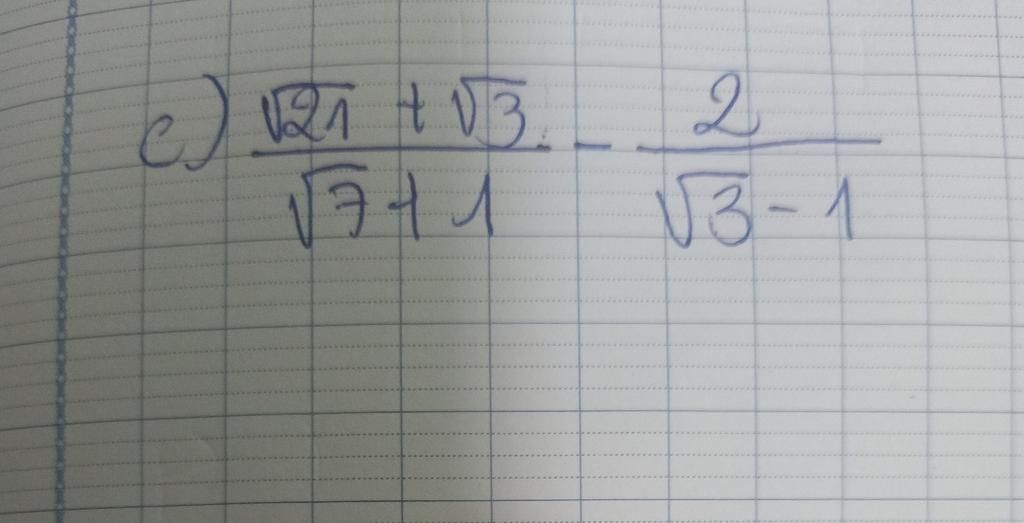 c) (√21 + √3)/(√7 + 1) - 2/(√3 - 1)